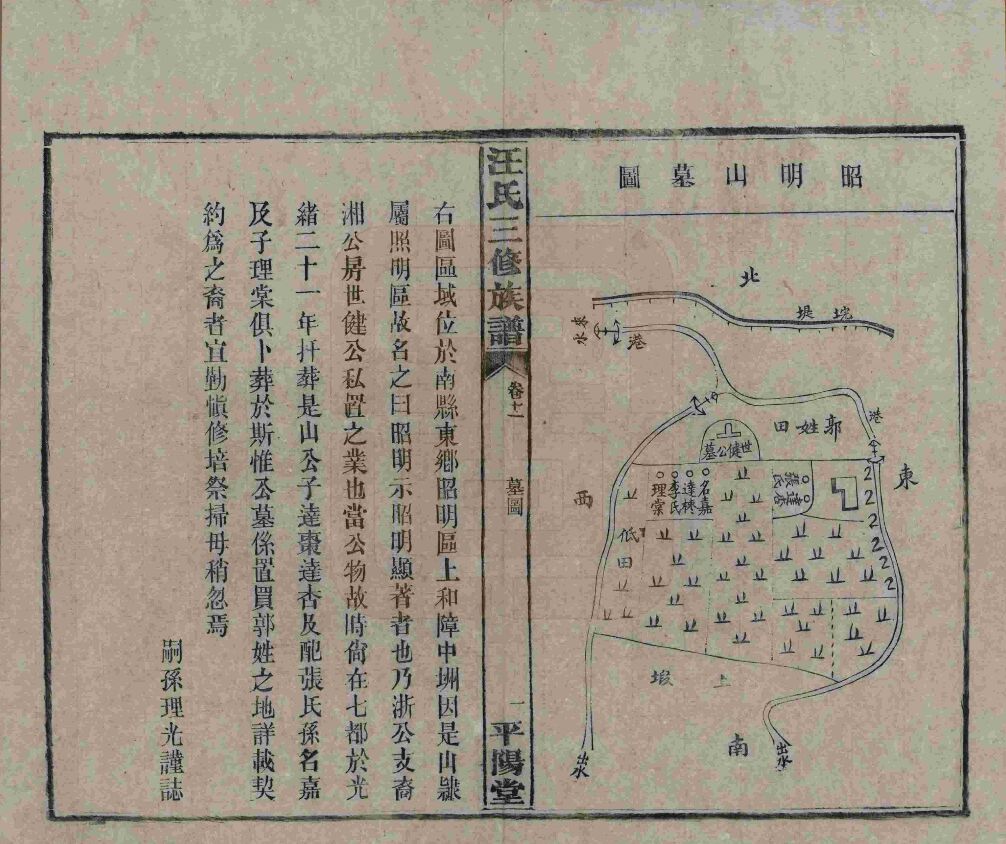 昭明山墓圖
北
垸堤
來水
港
港
郭姓田
世健公墓
東
西
名嘉
達棟
李氏
理棠
達杏
張氏
低田
上
南
出水
出水
汪氏三修族譜
卷十一
墓圖
一
平陽堂
右圖區域位於南縣東鄉昭明區上和障中洲因是山隷
屬照明區故名之曰昭明示昭明顯著者也乃浙公支裔
湘公房世健公私置之業也當公物故時尙在七都於光
緒二十一年扦葬是山公子達棗達杏及配張氏孫名嘉
及子理棠俱卜葬於斯惟公墓係置買郭姓之地詳載契
約爲之裔者宜勤愼修培祭掃毋稍忽焉
嗣孫理光謹誌